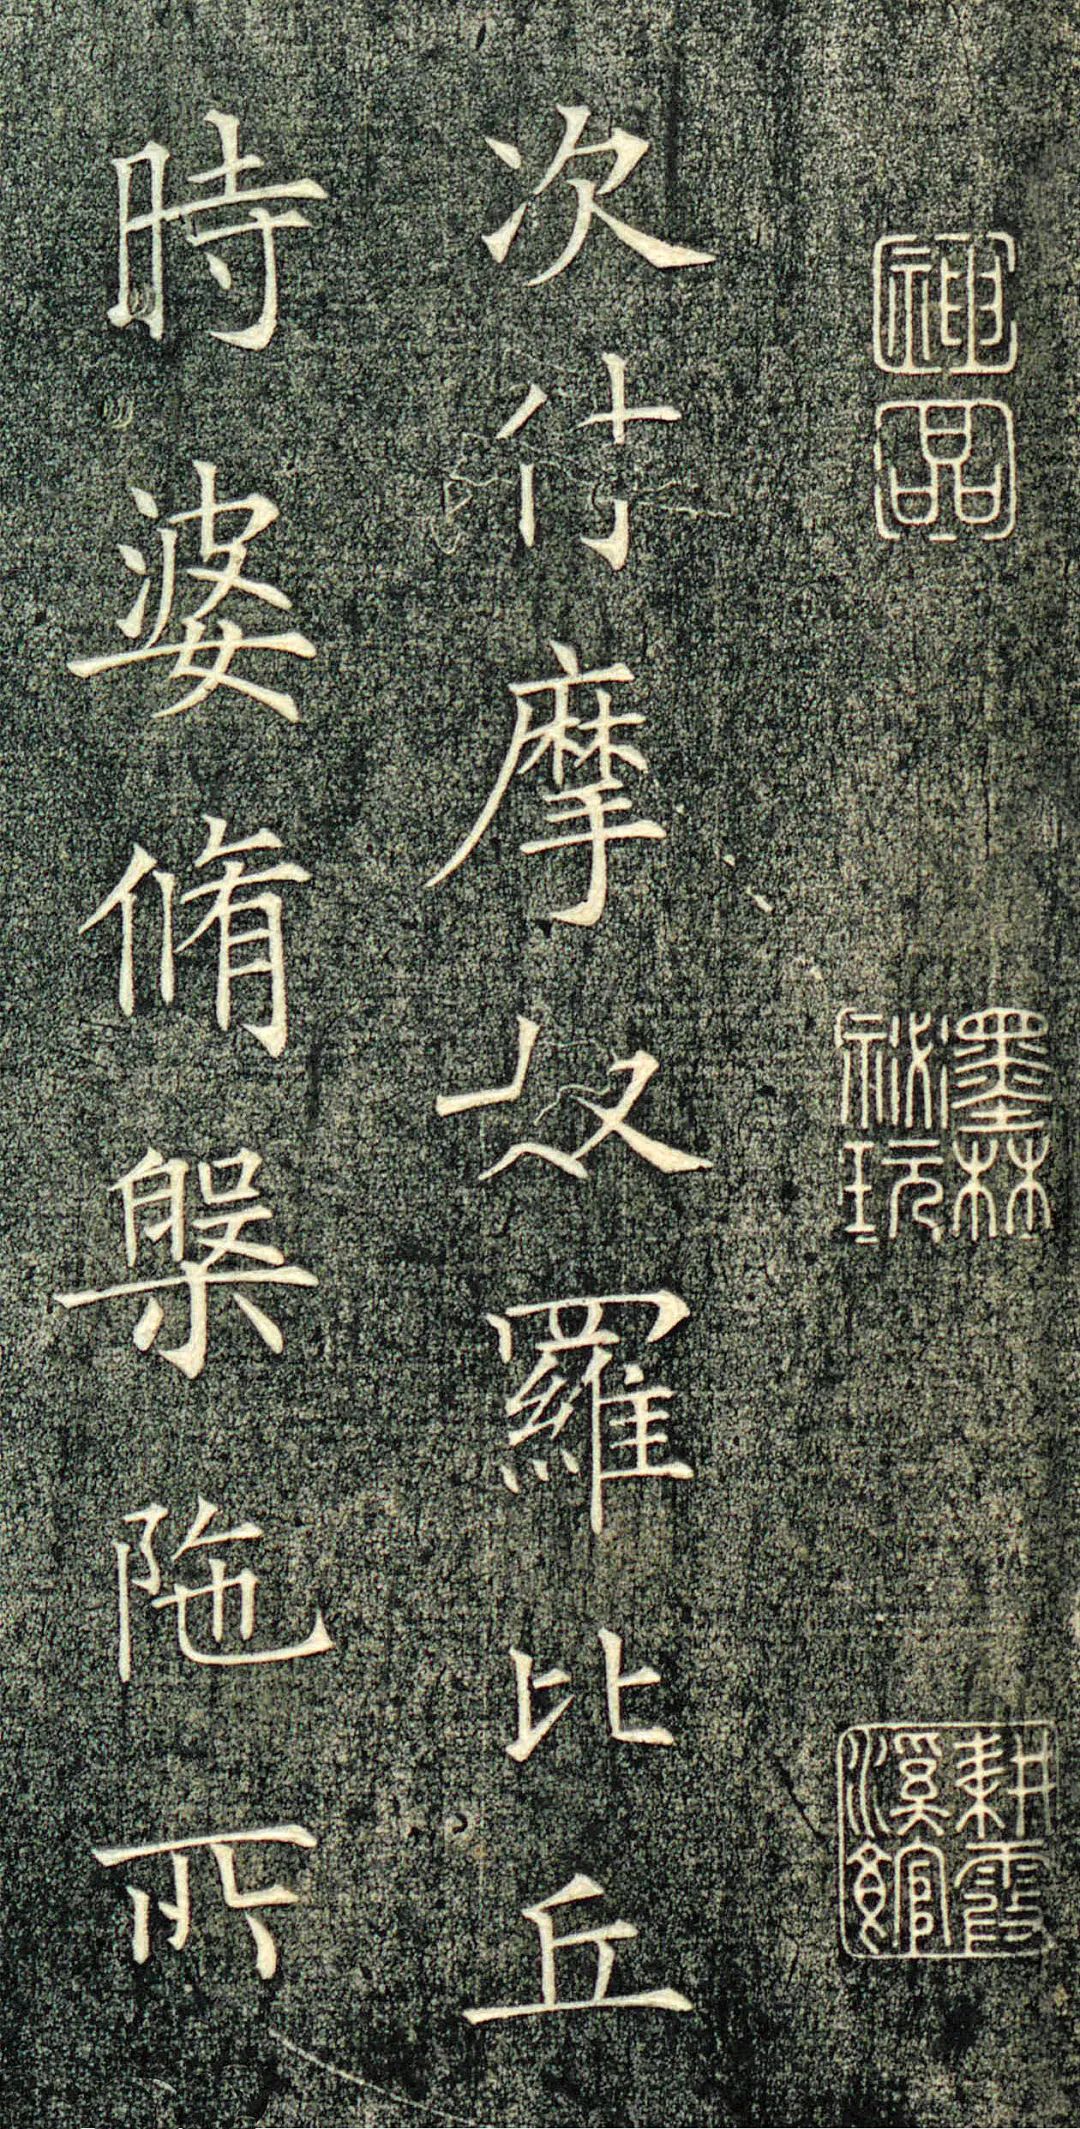 神
品
墨林
祕玩
耕霞
溪館
次付摩奴羅比丘
時婆脩槃陁所